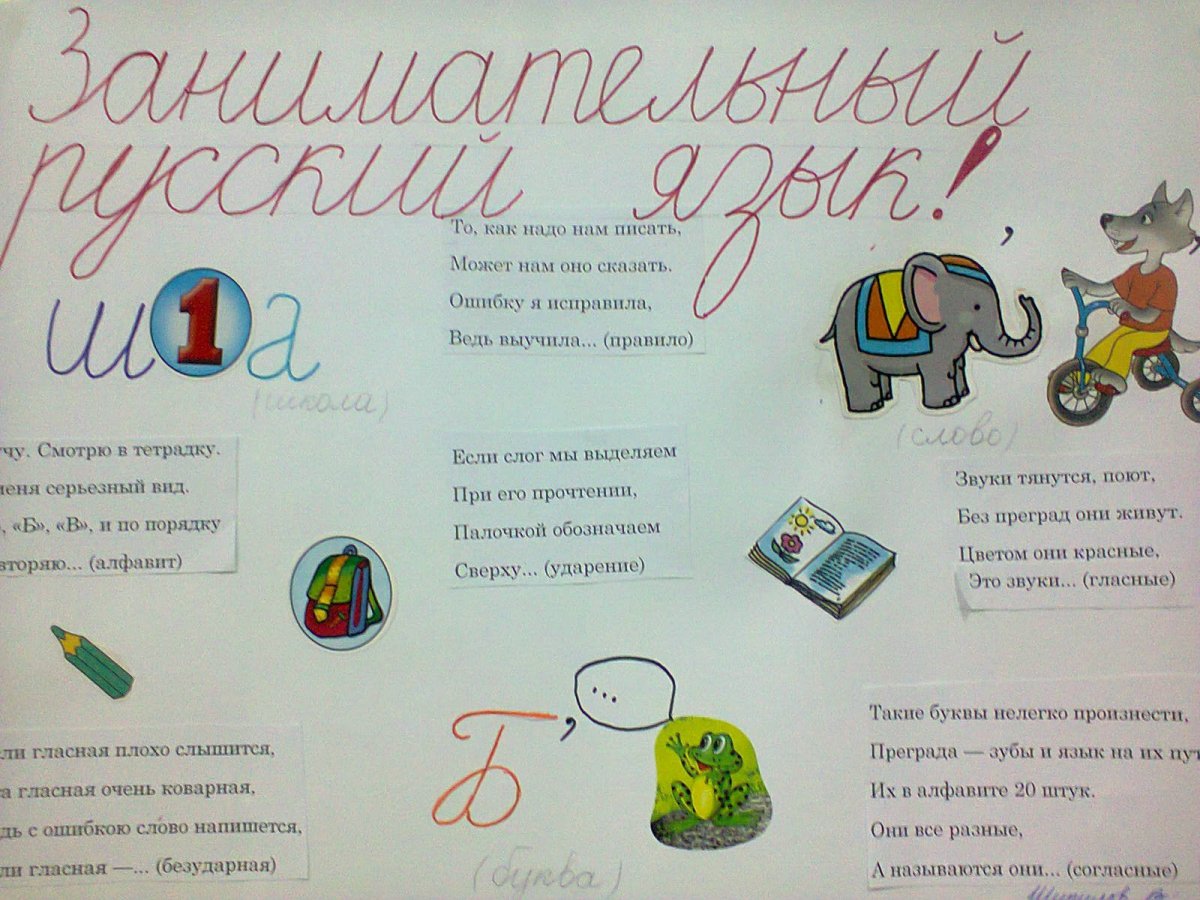 Занимательный
русский язык!
То, как надо нам писать,
Может нам оно сказать.
Ошибку я исправила,
Ведь выучила... (правило)
ш1а
(школа)
,
(слово)
чу. Смотрю в тетрадку.
меня серьезный вид.
, «Б», «В», и по порядку
вторяю... (алфавит)
Если слог мы выделяем
При его прочтении,
Палочкой обозначаем
Сверху... (ударение)
Звуки тянутся, поют,
Без преград они живут.
Цветом они красные,
Это звуки... (гласные)
ли гласная плохо слышится,
а гласная очень коварная,
дь с ошибкою слово напишется,
ли гласная —... (безударная)
Б, ...
(буква)
Такие буквы нелегко произнести,
Преграда — зубы и язык на их пут
Их в алфавите 20 штук.
Они все разные,
А называются они... (согласные)